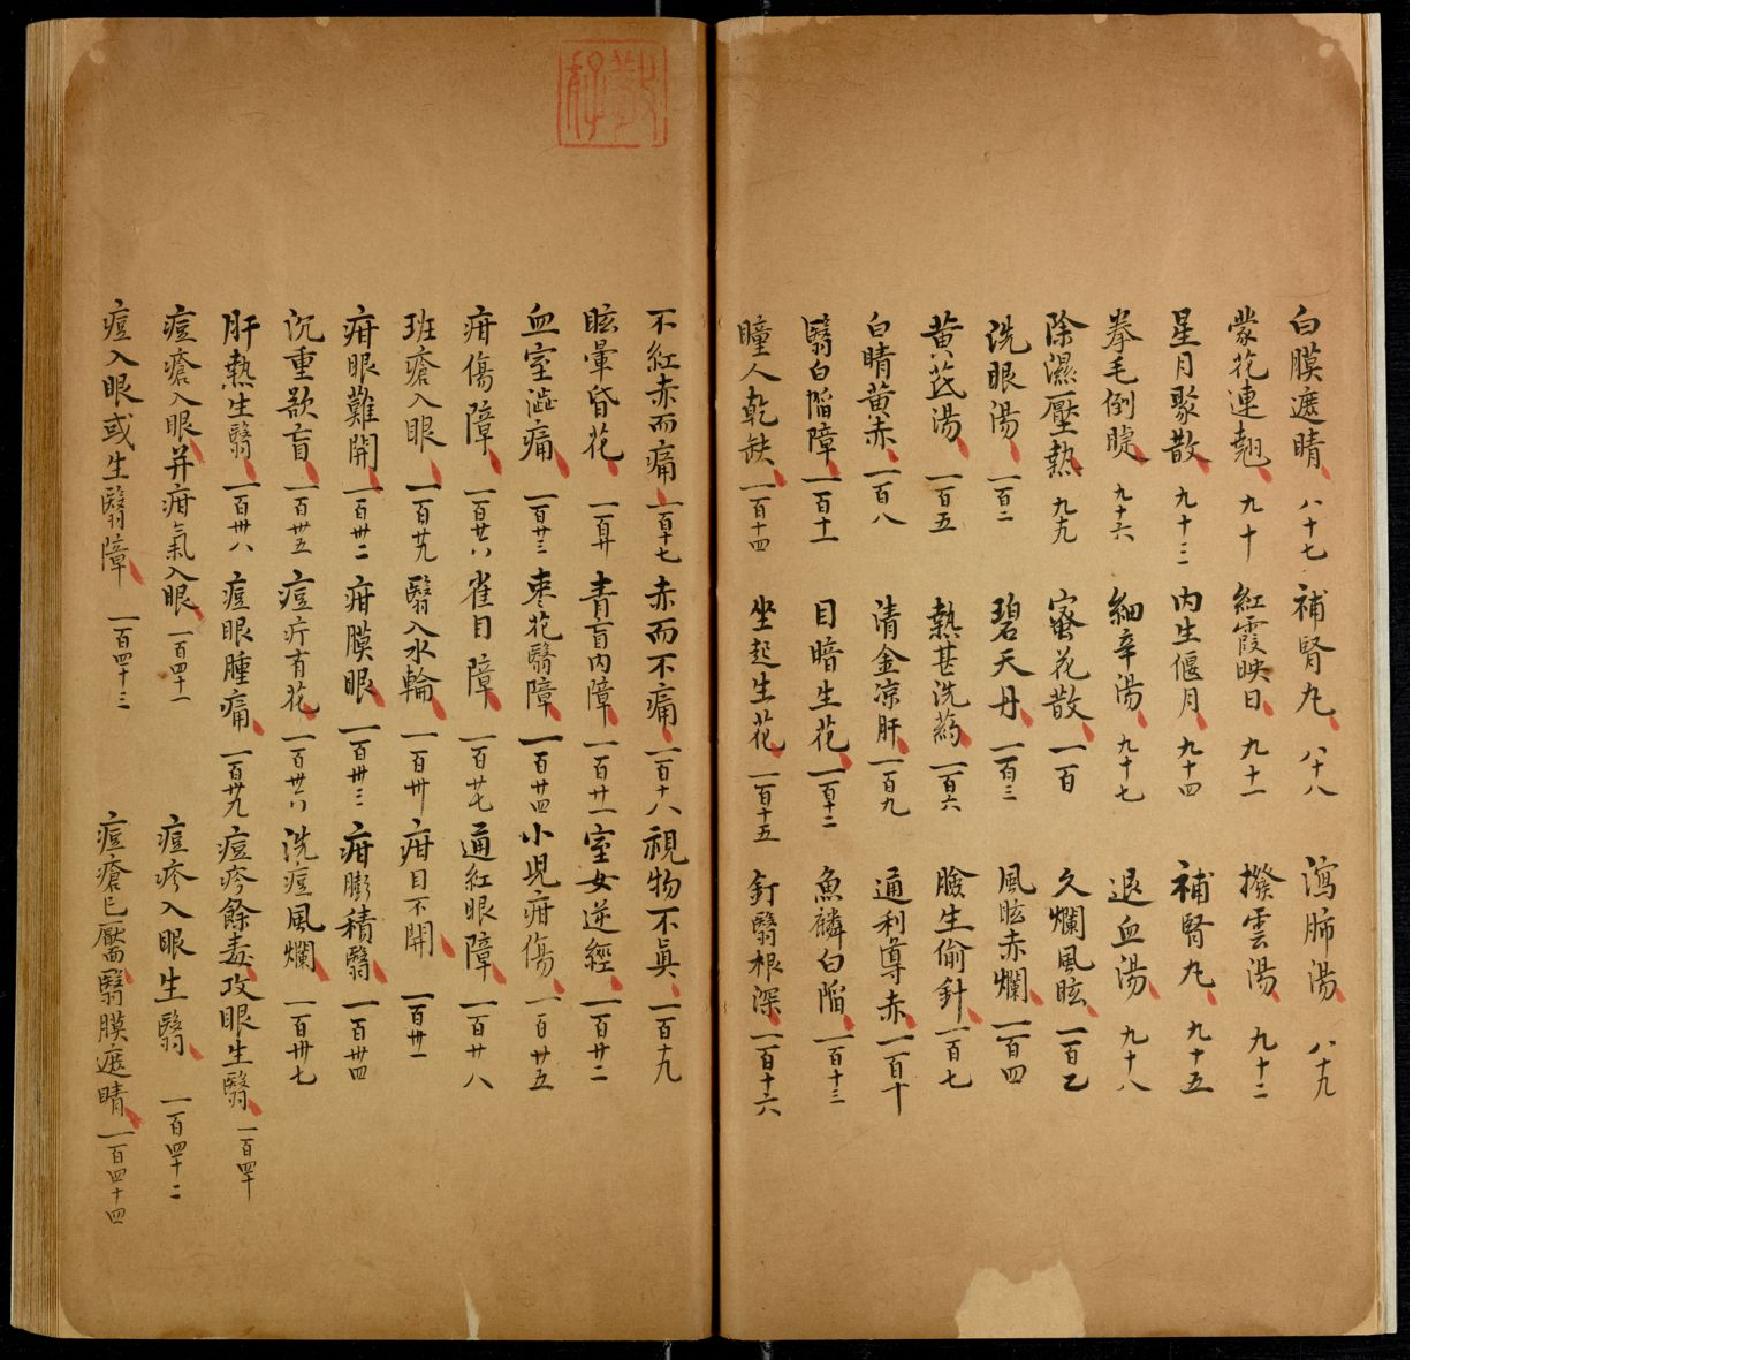 白膜遮睛 八十七 補腎丸 八十八 瀉肺湯 八十九
蒙花連翹 九十 紅霞映日 九十一 撥雲湯 九十二
星月聚散 九十三 內生偃月 九十四 補腎丸 九十五
拳毛倒睫 九十六 細辛湯 九十七 退血湯 九十八
除濕壓熱 九十九 蜜花散 一百 久爛風眩 一百乙
洗眼湯 一百二 碧天丹 一百三 風眩赤爛 一百四
黃芪湯 一百五 熱甚洗药 一百六 臉生偷針 一百七
白睛黃赤 一百八 清金凉肝 一百九 通利導赤 一百十
翳白陷障 一百十一 目暗生花 一百十二 魚鱗白陷 一百十三
瞳人乾缺 一百十四 坐起生花 一百十五 釘翳根深 一百十六
不紅赤而痛 一百十七 赤而不痛 一百十八 視物不眞 一百十九
眩暈昏花 一百廿 青盲內障 一百廿一 室女逆經 一百廿二
血室澁痛 一百廿三 枣花翳障 一百廿四 小児疳傷 一百廿五
疳傷障 一百廿六 雀目障 一百廿七 通紅眼障 一百廿八
班瘡入眼 一百廿九 翳入水輪 一百卅 疳目不開 一百卅一
疳眼難開 一百卅二 疳膜眼 一百卅三 疳膨積翳 一百卅四
沉重欲盲 一百卅五 痘疔有花 一百卅六 洗痘風爛 一百卅七
肝熱生翳 一百卅八 痘眼腫痛 一百卅九 痘疹餘毒攻眼生翳 一百四十
痘瘡入眼并疳氣入眼 一百四十一 痘疹入眼生翳 一百四十二
痘入眼或生翳障 一百四十三 痘瘡已靨翳膜遮睛 一百四十四